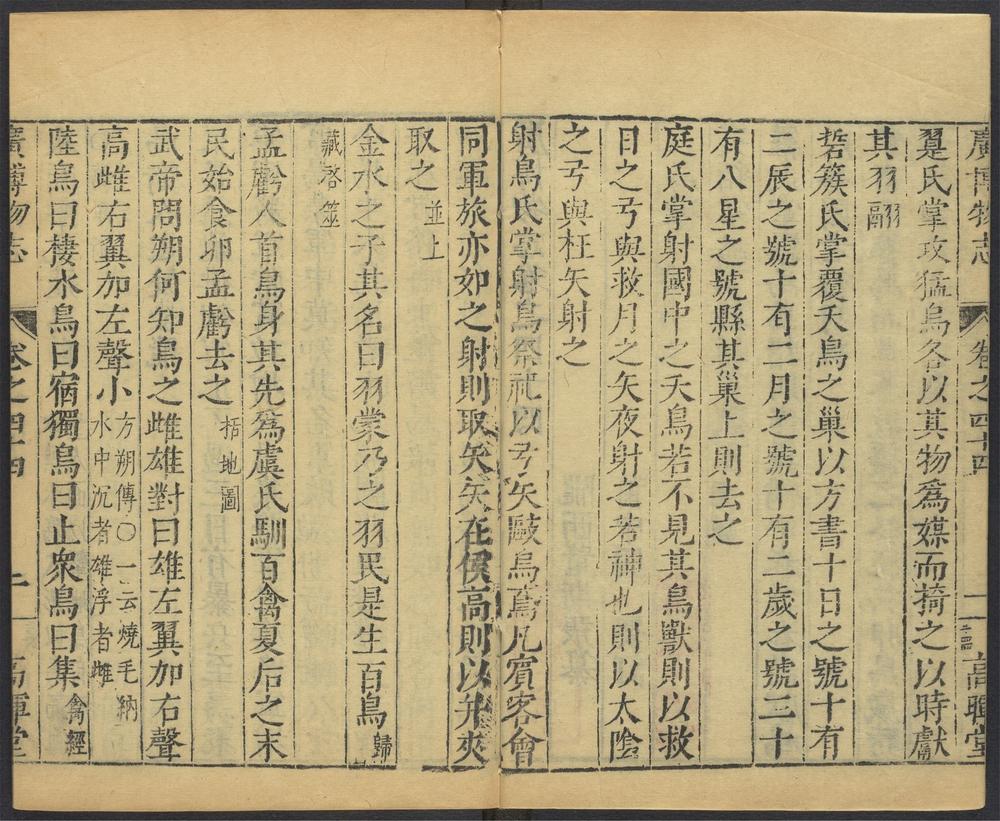 廣博物志 卷之四十四 高暉堂
翨氏掌攻猛鳥各以其物爲媒而掎之以時獻
其羽翮
硩蔟氏掌覆夭鳥之巢以方書十日之號十有
二辰之號十有二月之號十有二歲之號二十
有八星之號縣其巢上則去之
庭氏掌射國中之夭鳥若不見其鳥獸則以救
日之弓與救月之矢夜射之若神也則以太陰
之弓與枉矢射之
射鳥氏掌射鳥祭祀以弓矢敺烏鳶凡賓客會
同軍旅亦如之射則取矢矢在侯高則以并夾
取之 並上
金水之子其名曰羽蒙乃之羽民是生百鳥 歸
藏啓筮
孟虧人首鳥身其先爲虞氏馴百禽夏后之末
民始食卵孟虧去之 括地圖
武帝問朔何知鳥之雌雄對曰雄左翼加右聲
高雌右翼加左聲小 方朔傳〇一云燒毛納
水中沉者雄浮者雌
陸鳥曰棲水鳥曰宿獨鳥曰止衆鳥曰集 禽經
廣博物志 卷之四十四 高暉堂